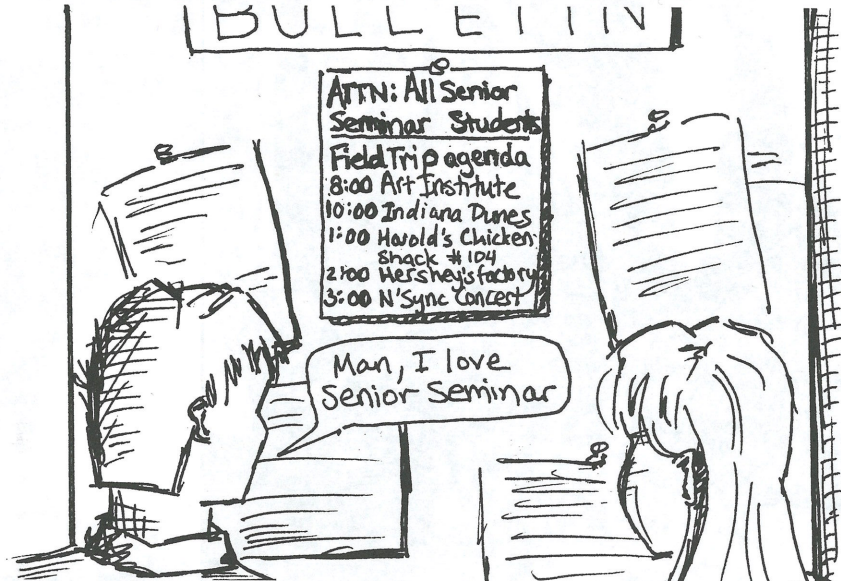 BULLETIN
ATTN: All Senior
Seminar Students
Field Trip agenda
8:00 Art Institute
10:00 Indiana Dunes
1:00 Harold's Chicken
Shack #104
2:00 Hershey's factory
3:00 N'Sync Concert
Man, I love
Senior Seminar